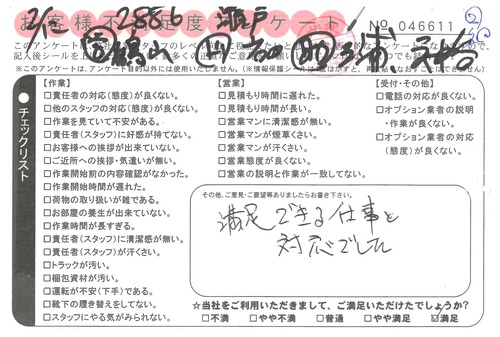 2/5 2886 瀬戸
お客様不満足度アンケート No 046611
このアンケートは
※このアンケートは、アンケート目的以外には使用いたしません。
チェックリスト
【作業】
□責任者の対応(態度)が良くない。
□他のスタッフの対応(態度)が良くない。
□作業を見ていて不安がある。
□責任者(スタッフ)に好感が持てない。
□お客様への挨拶が出来ていない。
□ご近所への挨拶・気遣いが無い。
□作業開始前の内容確認がなかった。
□作業開始時間が遅れた。
□荷物の取り扱いが雑である。
□お部屋の養生が出来ていない。
□作業時間が長すぎる。
□責任者(スタッフ)に清潔感が無い。
□責任者(スタッフ)が汗くさい。
□トラックが汚い。
□梱包資材が汚い。
□運転が不安(下手)である。
□靴下の履き替えをしてない。
□スタッフにやる気がみられない。
【営業】
□見積もり時間に遅れた。
□見積もり時間が長い。
□営業マンに清潔感が無い。
□営業マンが煙草くさい。
□営業マンが汗くさい。
□営業態度が良くない。
□営業の説明と作業が一致してない。
【受付・その他】
□電話の対応が良くない。
□オプション業者の説明
・作業が良くない。
□オプション業者の対応
(態度)が良くない。
その他、ご意見・ご要望等ありましたらお書き下さい。
満足できる仕事と
対応でした
☆当社をご利用いただきまして、ご満足いただけたでしょうか?
□不満 □やや不満 □普通 □やや満足 ☑満足